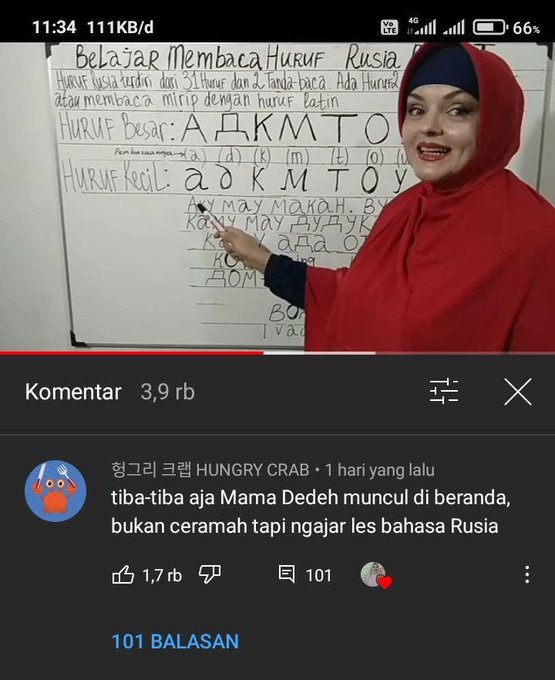 11:34 111KB/d Vo LTE 4G 66%
BeLajar Membaca Huruf Rusia
Huruf Rusia terdiri dari 31 Huruf dan 2 Tanda-baca. Ada Huruf2
atau membaca mirip dengan huruf latin
Huruf Besar: А Д К М Т О
(a) (d) (k) (m) (t) (o)
Huruf Kecil: а д к м т о у
Аку мау макан. Ву
Каму мау дудук
ада
ДОМ
Komentar 3,9 rb
헝그리 크랩 HUNGRY CRAB • 1 hari yang lalu
tiba-tiba aja Mama Dedeh muncul di beranda,
bukan ceramah tapi ngajar les bahasa Rusia
1,7 rb 101
101 BALASAN